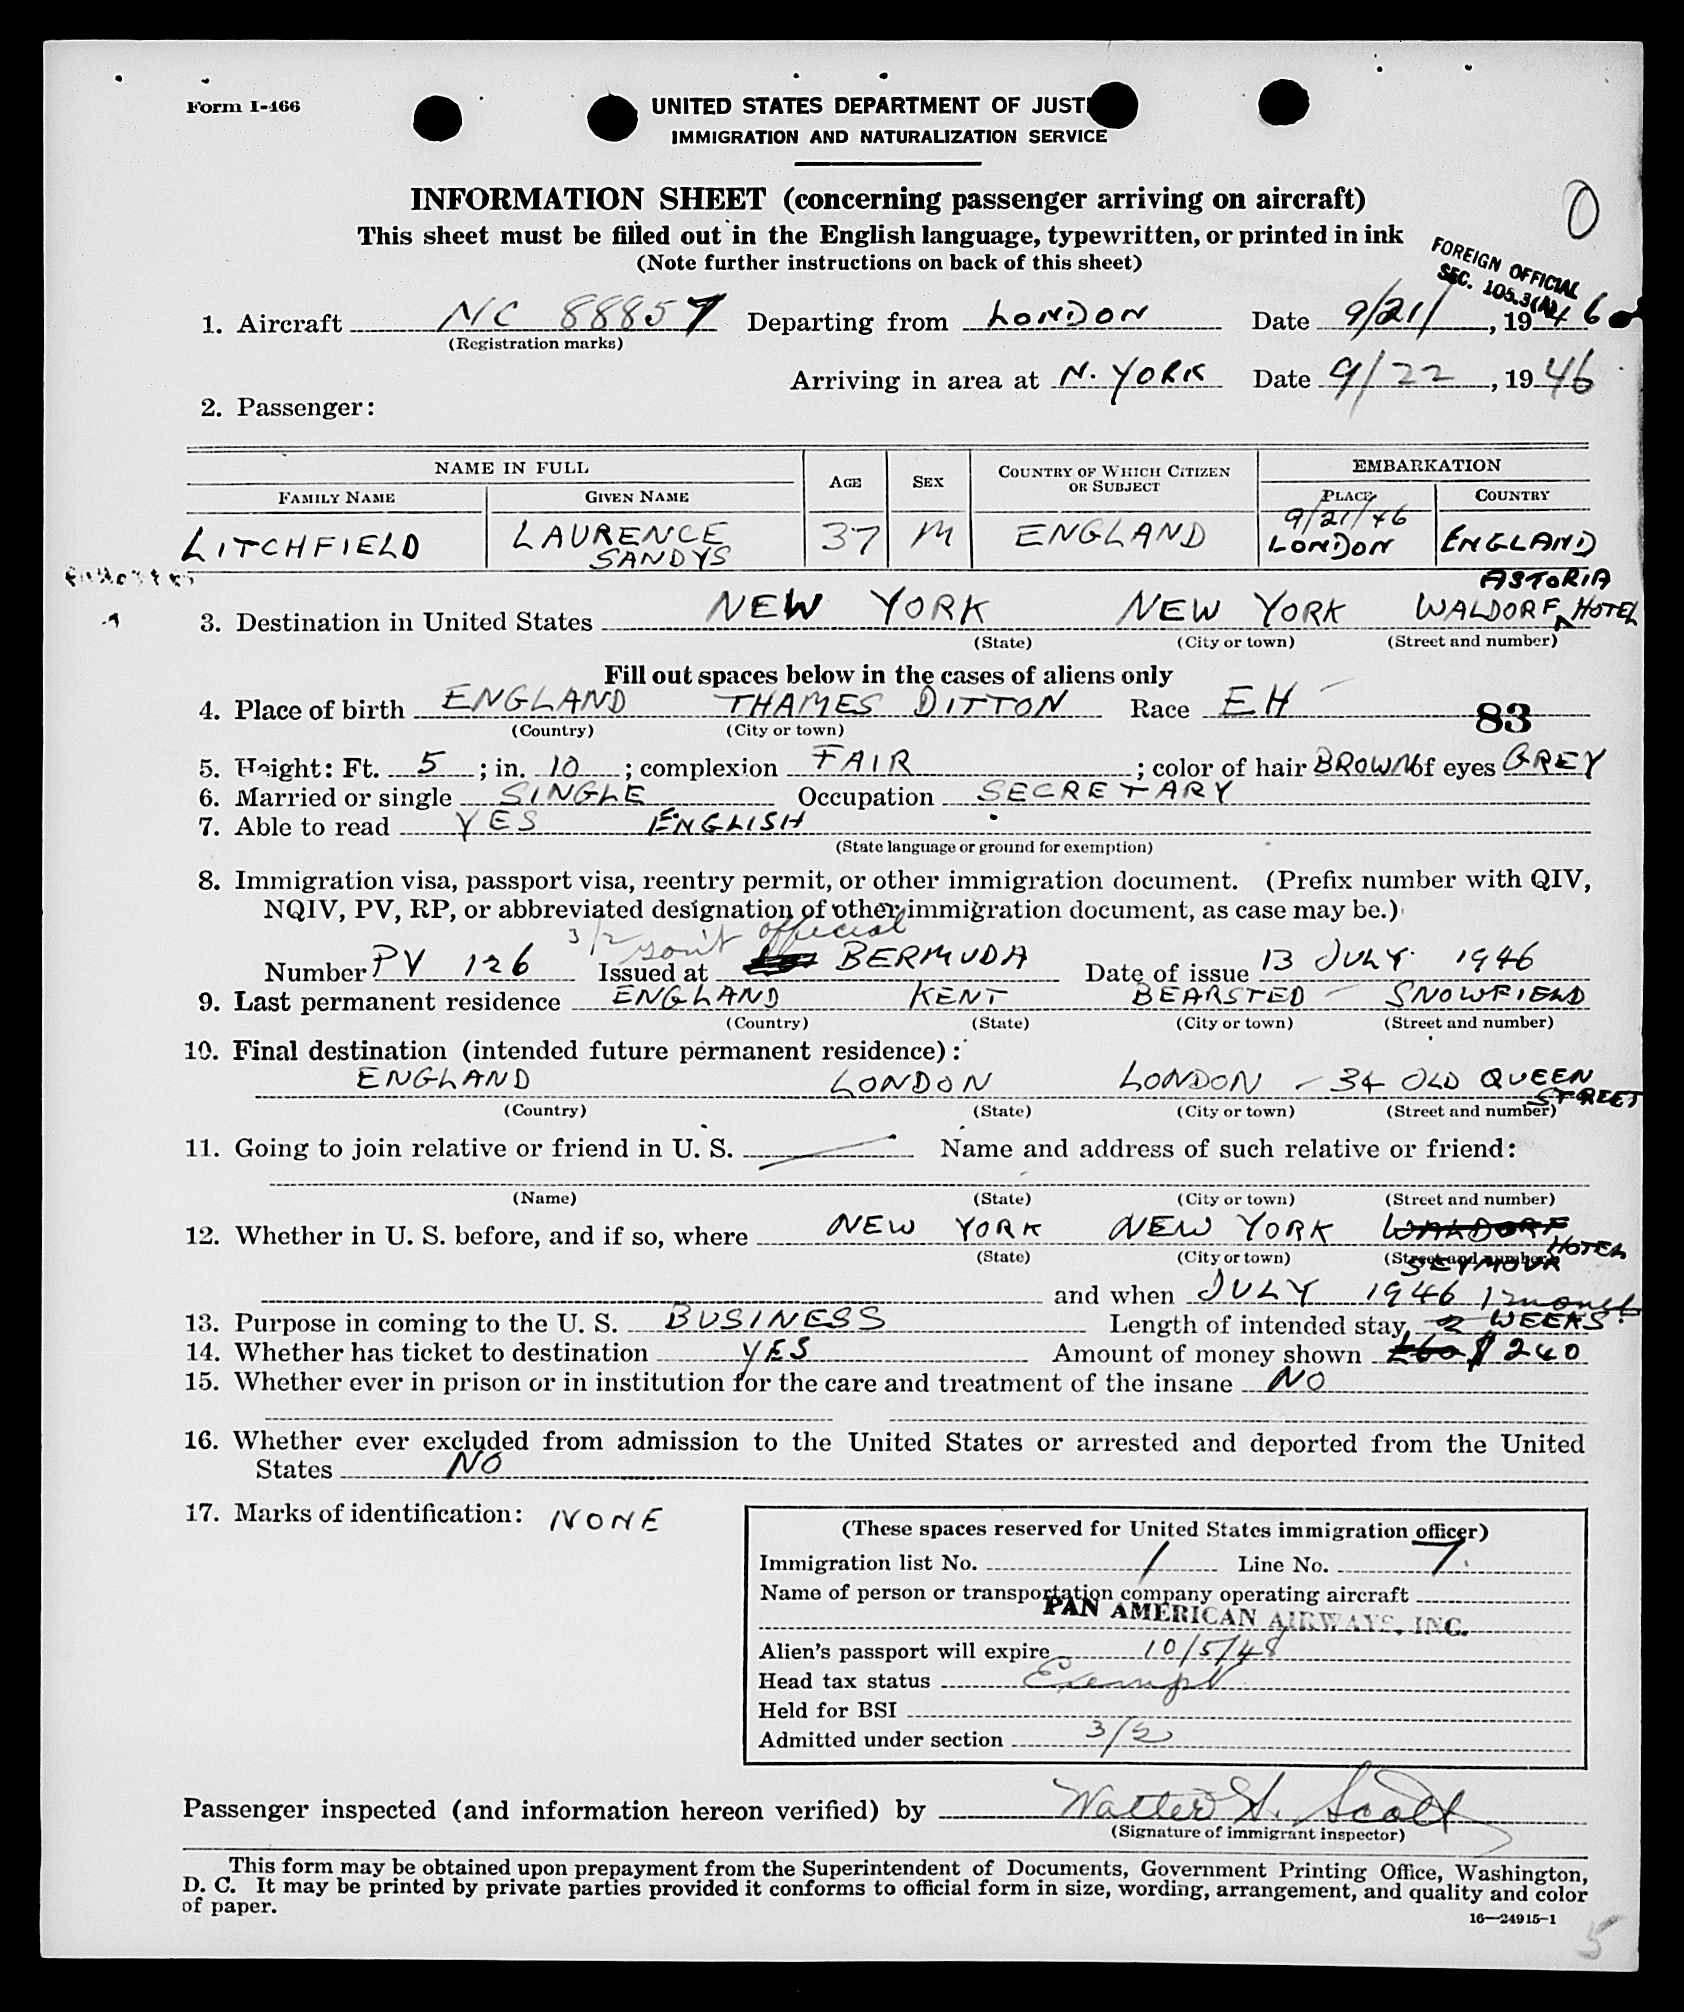 Form I-466
UNITED STATES DEPARTMENT OF JUSTI
IMMIGRATION AND NATURALIZATION SERVICE
INFORMATION SHEET (concerning passenger arriving on aircraft)
0
This sheet must be filled out in the English language, typewritten, or printed in ink
(Note further instructions on back of this sheet)
FOREIGN OFFICIAL
SEC. 105.3(A)
1. Aircraft NC 88857 Departing from LONDON Date 9/21/, 1946
(Registration marks)
Arriving in area at N. YORK Date 9/22, 1946
2. Passenger:
NAME IN FULL AGE SEX COUNTRY OF WHICH CITIZEN OR SUBJECT EMBARKATION
FAMILY NAME GIVEN NAME PLACE COUNTRY
9/21/46
LITCHFIELD LAURENCE SANDYS 37 M ENGLAND LONDON ENGLAND
ASTORIA
3. Destination in United States NEW YORK NEW YORK WALDORF HOTEL
(State) (City or town) (Street and number)
Fill out spaces below in the cases of aliens only
4. Place of birth ENGLAND THAMES DITTON Race EH 83
(Country) (City or town)
5. Height: Ft. 5; in. 10; complexion FAIR; color of hair BROWN of eyes GREY
6. Married or single SINGLE Occupation SECRETARY
7. Able to read YES ENGLISH
(State language or ground for exemption)
8. Immigration visa, passport visa, reentry permit, or other immigration document. (Prefix number with QIV,
NQIV, PV, RP, or abbreviated designation of other immigration document, as case may be.)
3/2 gov't official
Number PV 126 Issued at BERMUDA Date of issue 13 JULY 1946
9. Last permanent residence ENGLAND KENT BEARSTED - SNOWFIELD
(Country) (State) (City or town) (Street and number)
10. Final destination (intended future permanent residence):
ENGLAND LONDON LONDON - 34 OLD QUEEN STREET
(Country) (State) (City or town) (Street and number)
11. Going to join relative or friend in U. S. Name and address of such relative or friend:
(Name) (State) (City or town) (Street and number)
12. Whether in U. S. before, and if so, where NEW YORK NEW YORK WALDORF
(State) (City or town) (Street and number)
SEYMOUR HOTEL
and when JULY 1946 1 month
13. Purpose in coming to the U. S. BUSINESS Length of intended stay, 2 WEEKS.
14. Whether has ticket to destination YES Amount of money shown £60 $240
15. Whether ever in prison or in institution for the care and treatment of the insane NO
16. Whether ever excluded from admission to the United States or arrested and deported from the United
States NO
17. Marks of identification: NONE
(These spaces reserved for United States immigration officer)
Immigration list No. 1 Line No. 7
Name of person or transportation company operating aircraft
PAN AMERICAN AIRWAYS, INC.
Alien's passport will expire 10/5/48
Head tax status Exempt
Held for BSI
Admitted under section 3/2
Passenger inspected (and information hereon verified) by Walter H. Scott
(Signature of immigrant inspector)
This form may be obtained upon prepayment from the Superintendent of Documents, Government Printing Office, Washington,
D. C. It may be printed by private parties provided it conforms to official form in size, wording, arrangement, and quality and color
of paper.
16—24915-1
5